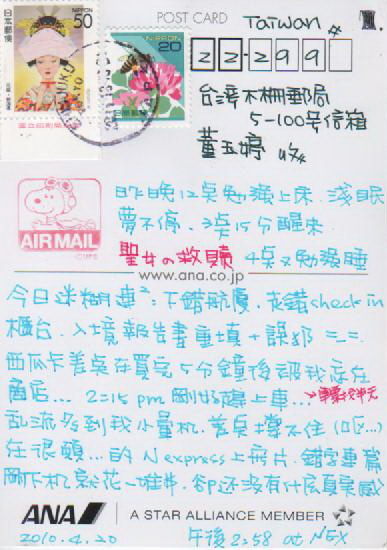 POST CARD
日本郵便
NIPPON
50
NIPPON
20
日本郵便
TAIWAN
22-299
台灣木柵郵局
5-100号信箱
董玉婷 收
昨晚12点勉強上床. 淺眠
夢不停. 3点15分醒來
聖女の救贖 4点又勉強睡
AIR MAIL
www.ana.co.jp
今日迷糊連²: 下錯航廈. 走錯check in
櫃台. 入境報告書重填+誤郵 ==
西瓜卡差点在買完5分鐘後被我忘在
商店... 2:15 pm 剛好趕上車...
乱流多到我
在很頓... 的 N express上
剛下机就花一堆. 卻还沒有什麼真實感
ANA
A STAR ALLIANCE MEMBER
2010.4.20 午後2:58 at NEX